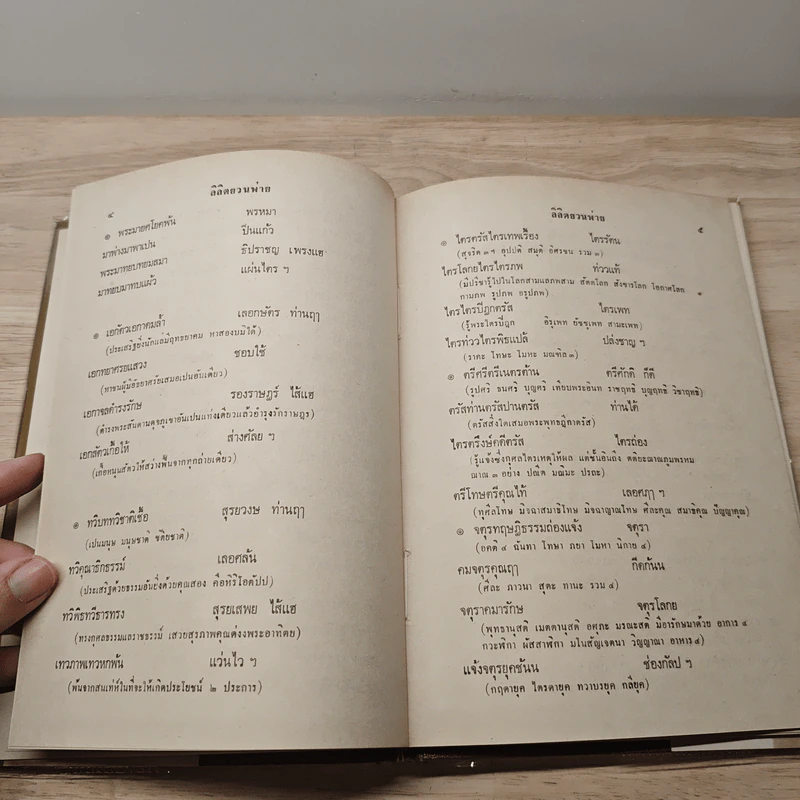 ลิลิตยวนพ่าย
๔
๏ พระมายศโยคพ้น พรหมา
มาพ่างมาพาเปน ปิ่นแก้ว
พระมาทยบทยมสมา ธิปราชญ เพรงแฮ
มาทยบมาทบแผ้ว แผ่นไตร ฯ
๏ เอกัตวเอกาตมล้ำ เลอกษัตร ท่านฤๅ
(ประเสริฐยิ่งนักแลมีฤทธยาคม หาสองบมิได้)
เอกทยาศรยแสวง ชอบใช้
(หาชนผู้มีอัธยาศรัยเสมอเปนอันเดียว)
เอกาจลดำรงรักษ รองราษฎร์ ไส้แฮ
(ดำรงพระสันดานดุจภูเขาอันเปนแท่งเดียวแล้วอำรุงรักราษฎร)
เอกสัตวเกื้อให้ ส่างศัลย ฯ
(เกื้อหนุนสัตวให้สว่างพ้นจากทุกถ่ายเดียว)
๏ ทวิบททวิชาติเชื้อ สุรยวงษ ท่านฤๅ
(เปนมนุษ มนุษชาติ ขติยชาติ)
ทวิคุณาธิกธรรม์ เลอศล้น
(ประเสริฐด้วยธรรมอันยิ่งด้วยคุณสอง คือหิริโอตัปป)
ทวิพิธทวีธารทรง สุรยเสพย ไส้แฮ
(ทรงกุศลธรรมแลราชธรรม์ เสวยสุรภาพคุณดั่งพระอาทิตย)
เทวภาพเทวหกพ้น แว่นไว ฯ
(พ้นจากสนเท่ห์ในที่จะให้เกิดประโยชน์ ๒ ประการ)
ลิลิตยวนพ่าย
๕
๏ ไตรตรัสไตรเทพเรื้อง ไตรรัตน
(สุจริต ๓ ฯ อุปปติ สมุติ อิศรชน รวม ๓)
ไตรโลกยไตรไตรภพ ท่ววแท้
(มีปรีชารู้ไปในโลกสามแลภพสาม สัตตโลก สังขารโลก โอกาศโลก
กามภพ รูปภพ อรูปภพ)
ไตรไตรปิฎกตรัส ไตรเพท
(รู้พระไตรปิฎก อิรุเพท ยัชชุเพท สามะเพท)
ไตรท่ววไตรพิธแปล้ ปล่งชาญ ฯ
(ราคะ โทษะ โมหะ มณฑิล ๓)
๏ ตรีศรีตรีเนตรต้าน ตรีศักดิ ก็ดี
(รูปศรี ธนศรี บุญศรี เทียบพระอินท ราชฤทธิ บุญฤทธิ วิชาฤทธิ)
ตรัสท่านตรัสปานตรัส ท่านได้
(ตรัสสิ่งใดเสมอพระพุทธฎีกาตรัส)
ไตรตรึงษ์คตีตรัส ไตรถ่อง
(รู้แจ้งซึ่งกุศลไตรเหตุให้ผล แต่ชั้นอินถึง ตติยะฌาณภูมพรหม
ฌาณ ๓ อย่าง ปณีต มณิมะ ปรถะ)
ตรีโทษตรีคุณไท้ เลอศฦๅ ฯ
(ทุศีลโทษ มิจฉาสมาธิโทษ มิจฉาญาณโทษ ศีละคุณ สมาธิคุณ ปัญญาคุณ)
๏ จตุรทฤษฎิธรรมถ่องแจ้ง จตุรา
(อคติ ๔ ฉันทา โทษา ภยา โมหา นิกาย ๔)
คมจตุรคุณฤๅ กีดกันน
(ศีละ ภาวนา สุตะ ทานะ รวม ๔)
จตุราคมารักษ จตุรโลกย
(พุทธานุสติ เมตตานุสติ อศุภะ มรณะสติ มีอารักษมาด้วย อาการ ๔
กวะพิฬา ผัสสาพิฬา มโนสัญเจตนา วิญญาณา อาหาร ๔)
แจ้งจตุรยุคชันน ช่องกัลป ฯ
(กฤดายุค ไตรดายุค ทวาบรยุค กลียุค)